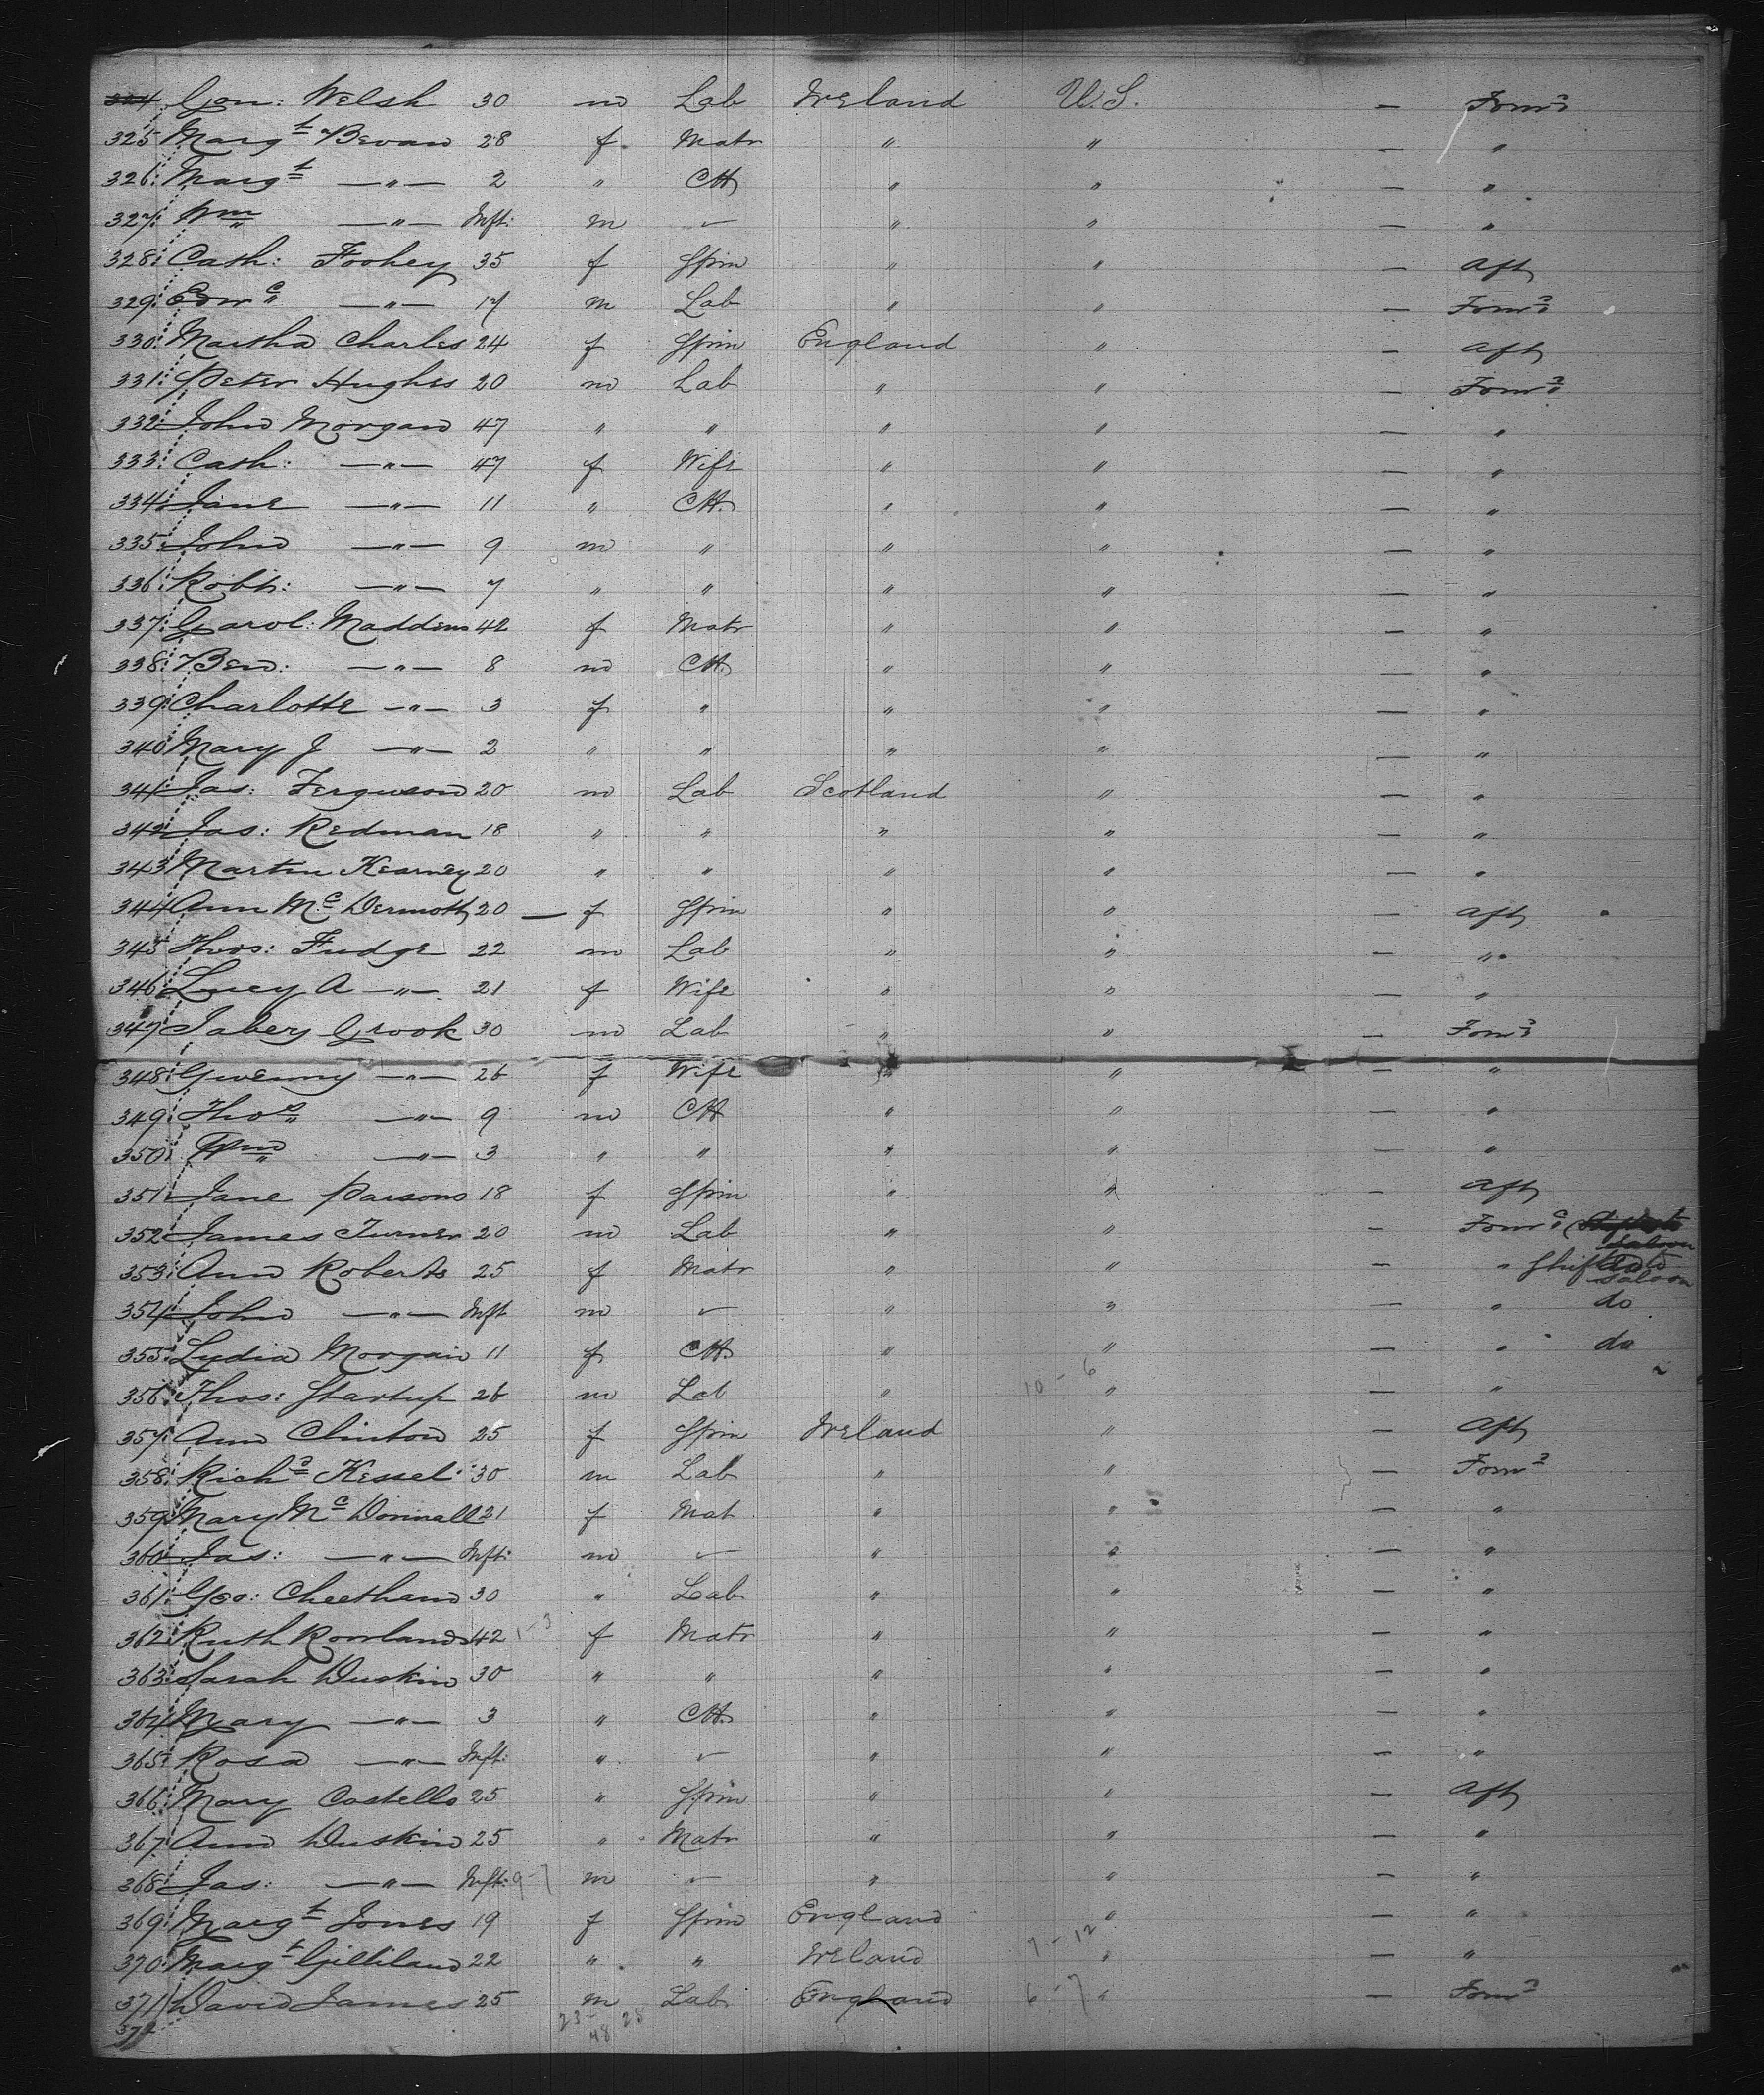 324 Con: Welsh 30 m Lab Ireland U.S. — Forwd
325 Margt Bevan 28 f Matr " " — "
326 Margt —"— 2 " Ch " " — "
327 Wm —"— Inft: m ✓ " " — "
328 Cath: Foohey 35 f Spin " " — Aft
329 Edwd —"— 17 m Lab " " — Forwd
330 Martha Charles 24 f Spin England " — Aft
331 Peter Hughes 20 m Lab " " — Forwd
332 John Morgan 47 " " " " — "
333 Cath: —"— 47 f Wife " " — "
334 Jane —"— 11 " Ch. " " — "
335 John —"— 9 m " " " — "
336 Robt: —"— 7 " " " " — "
337 Carol: Maddens 42 f Matr " " — "
338 Ben: —"— 8 m Ch. " " — "
339 Charlotte —"— 3 f " " " — "
340 Mary J —"— 2 " " " " — "
341 Jas: Ferguson 20 m Lab Scotland " — "
342 Jas: Redman 18 " " " " — "
343 Martin Kearney 20 " " " " — "
344 Ann Mc Dermott 20 — f Spin " " — Aft
345 Thos: Fudge 22 m Lab " " — "
346 Lucy A —"— 21 f Wife " " — "
347 Jabez Crook 30 m Lab " " — Forwd
348 Gwenny —"— 26 f Wife " " — "
349 Thos —"— 9 m Ch " " — "
350 Wm —"— 3 " " " " — "
351 Jane Parsons 18 f Spin " " — Aft
352 James Turner 20 m Lab " " — Forwd Saloon
353 Ann Roberts 25 f Matr " " — " Shifted to Saloon
354 John —"— Inft m ✓ " " — " do
355 Lydia Morgan 11 f Ch. " " — " do
356 Thos: Startup 26 m Lab " 10 - 6 " — "
357 Ann Clinton 25 f Spin Ireland " — Aft
358 Richd Kessel 30 m Lab " " — Forwd
359 Mary Mc Donnall 21 f Mat " " — "
360 Jas: —"— Inft: m ✓ " " — "
361 Geo: Cheetham 30 " Lab " " — "
362 Ruth Rowlands 42 1-3 f Matr " " — "
363 Sarah Duskin 30 " " " " — "
364 Mary —"— 3 " Ch. " " — "
365 Rosa —"— Inft: " ✓ " " — "
366 Mary Costello 25 " Spin " " — Aft
367 Ann Duskin 25 " Matr " " — "
368 Jas: —"— Inft: 9-7 m ✓ " " — "
369 Margt Jones 19 f Spin England " — "
370 Margt Gilliland 22 " " Ireland 7-12 " — "
371 David James 25 m Lab England 6-7 " — Forwd
372 23- 28
48